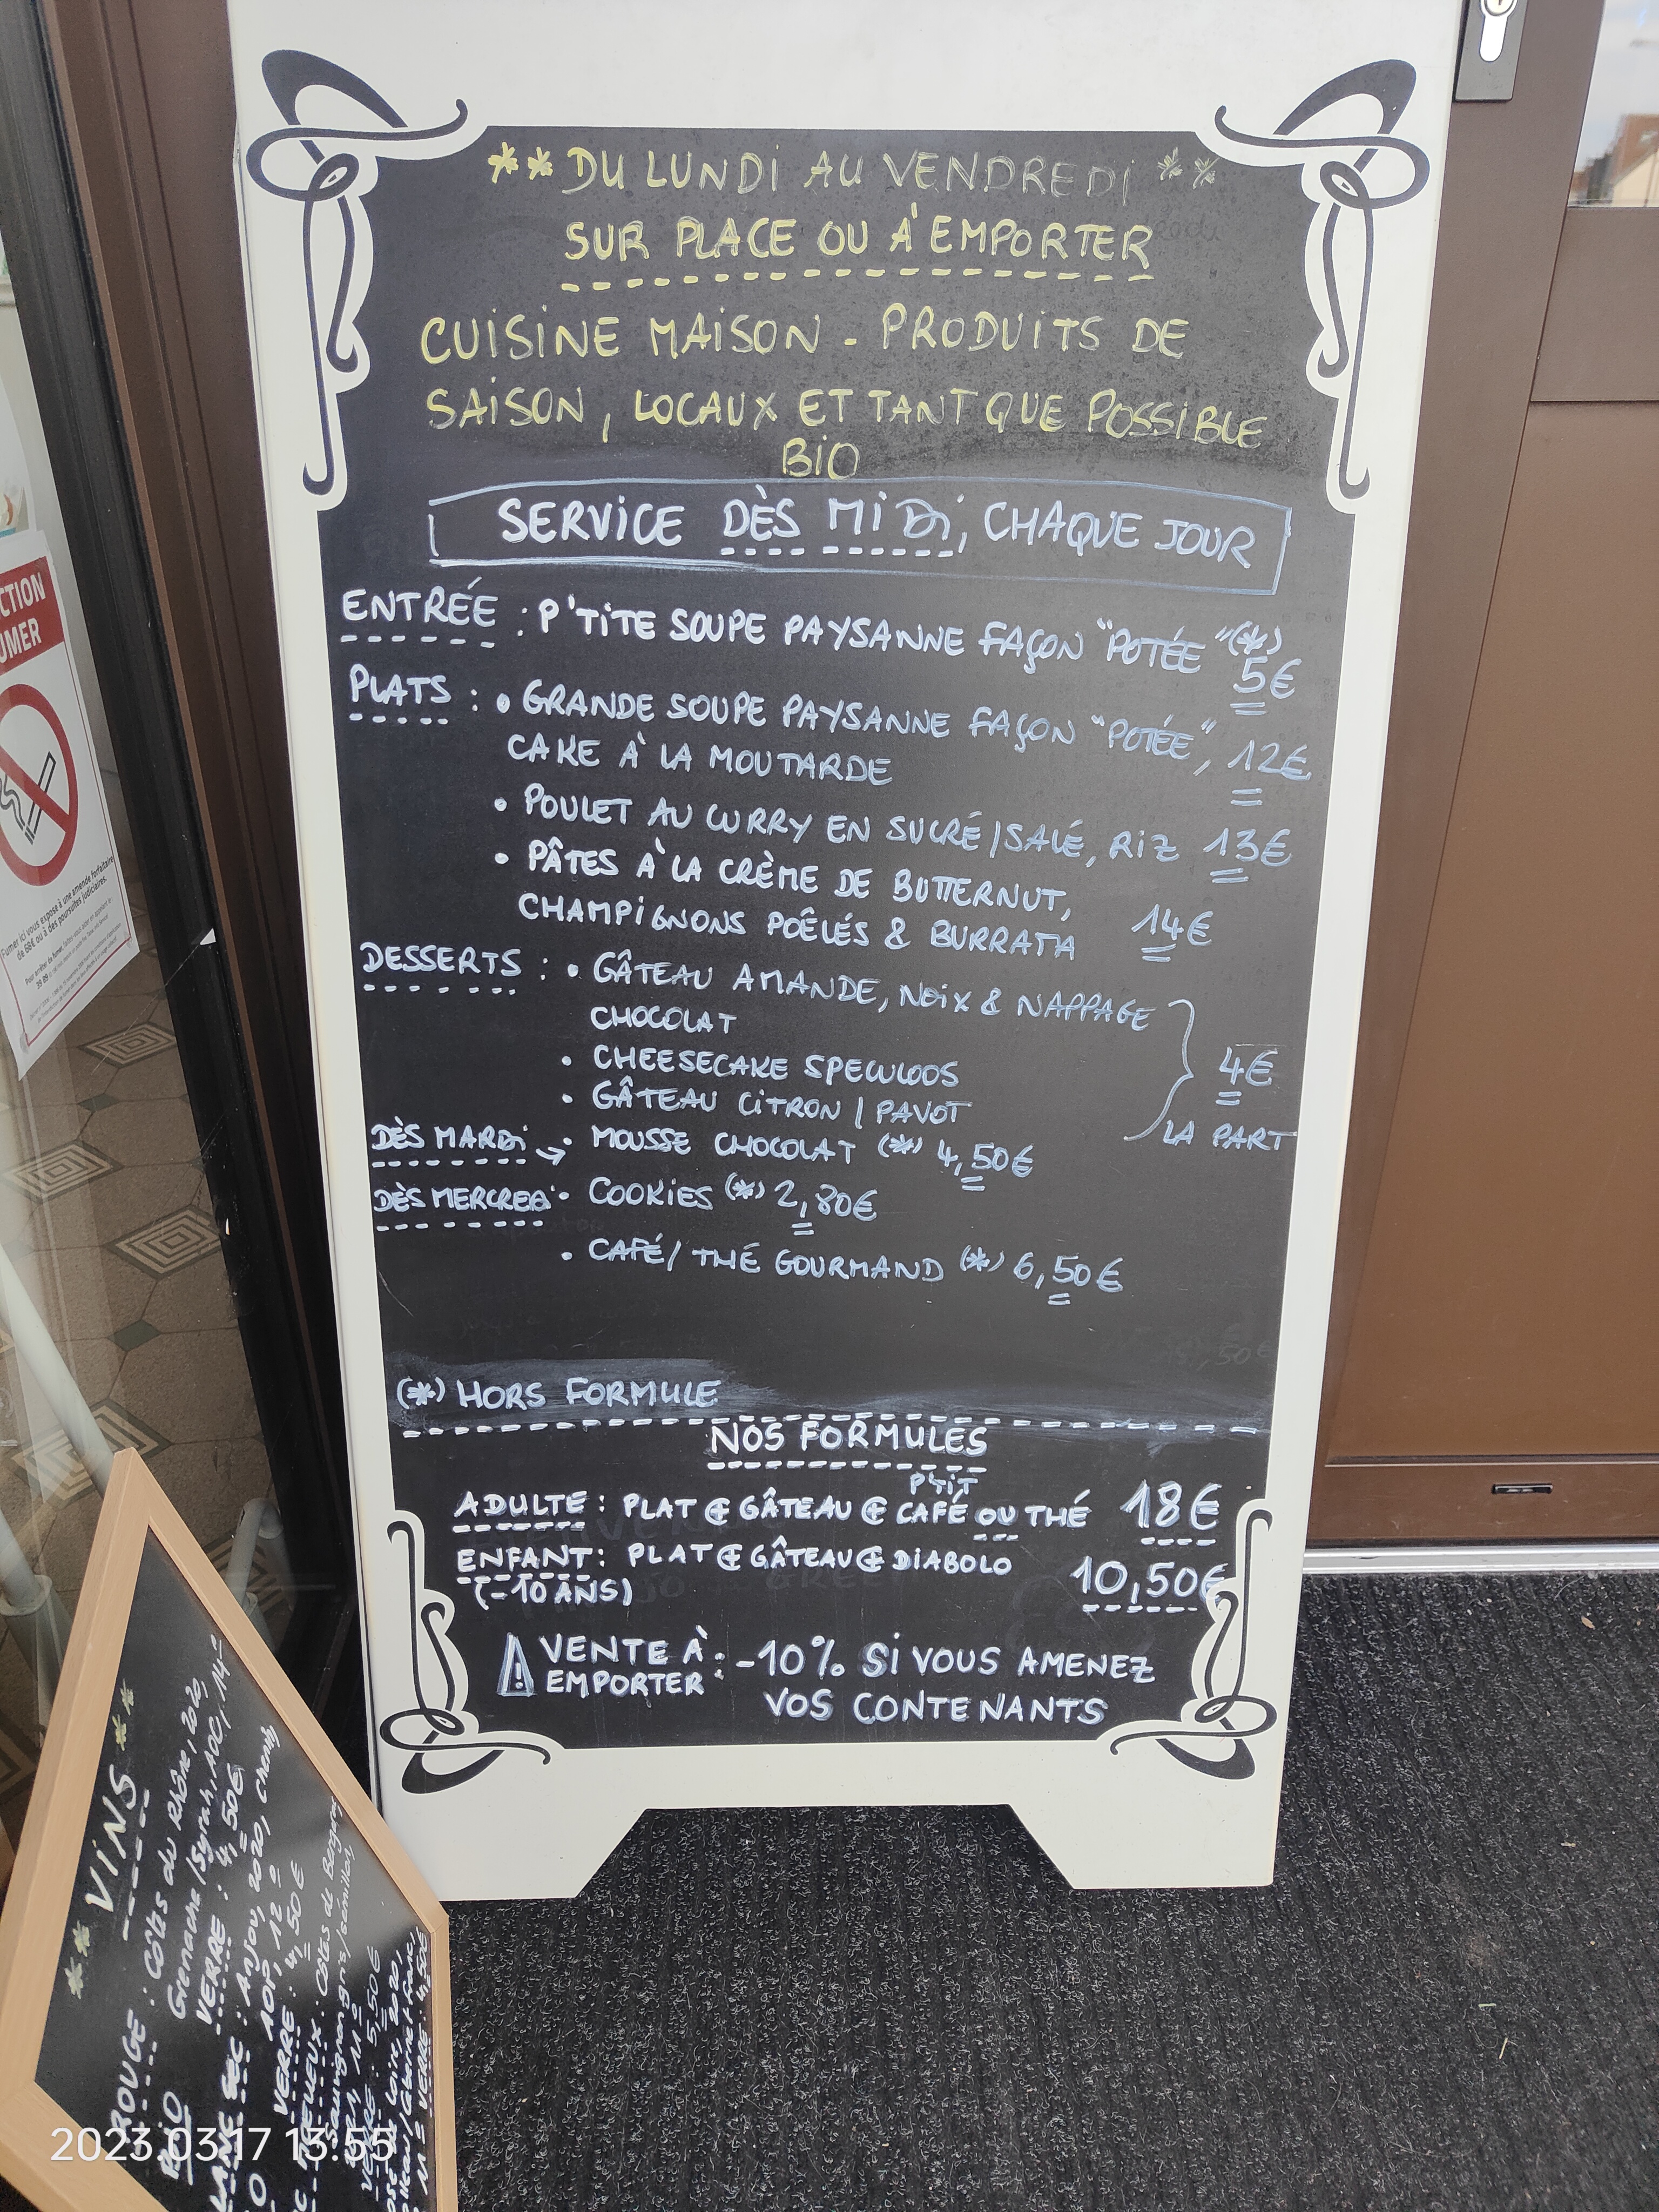 ** DU LUNDI AU VENDREDI **
SUR PLACE OU À EMPORTER
CUISINE MAISON - PRODUITS DE
SAISON, LOCAUX ET TANT QUE POSSIBLE
BIO
SERVICE DÈS MIDI, CHAQUE JOUR
ENTRÉE : P'TITE SOUPE PAYSANNE FAÇON "POTÉE" (*)
5€
PLATS : • GRANDE SOUPE PAYSANNE FAÇON "POTÉE", 12€
CAKE À LA MOUTARDE
• POULET AU CURRY EN SUCRÉ/SALÉ, RIZ 13€
• PÂTES À LA CRÈME DE BUTTERNUT,
CHAMPIGNONS POÊLÉS & BURRATA 14€
DESSERTS : • GÂTEAU AMANDE, NOIX & NAPPAGE
CHOCOLAT
• CHEESECAKE SPECULOOS 4€
• GÂTEAU CITRON / PAVOT
LA PART
DÈS MARDI → • MOUSSE CHOCOLAT (*) 4,50€
DÈS MERCREDI • COOKIES (*) 2,80€
• CAFÉ/ THÉ GOURMAND (*) 6,50€
(*) HORS FORMULE
NOS FORMULES
P'TIT
ADULTE : PLAT & GÂTEAU & CAFÉ OU THÉ 18€
ENFANT : PLAT & GÂTEAU & DIABOLO 10,50€
(-10 ANS)
VENTE À EMPORTER : -10% SI VOUS AMENEZ
VOS CONTENANTS
CTION
UMER
Fumer ici vous expose à une amende forfaitaire
de 68€ ou à des poursuites judiciaires.
** VINS **
ROUGE : Côtes du Rhône, 2020,
Grenache/Syrah, AOC, 14°
VERRE : 4,50€
SEC : Anjou, 2020, chenin,
AOP, 12°
VERRE : 4,50€
Côtes de Bergerac
VERRE : 5,50€
VERRE 4,50€
2023.03.17 13:55